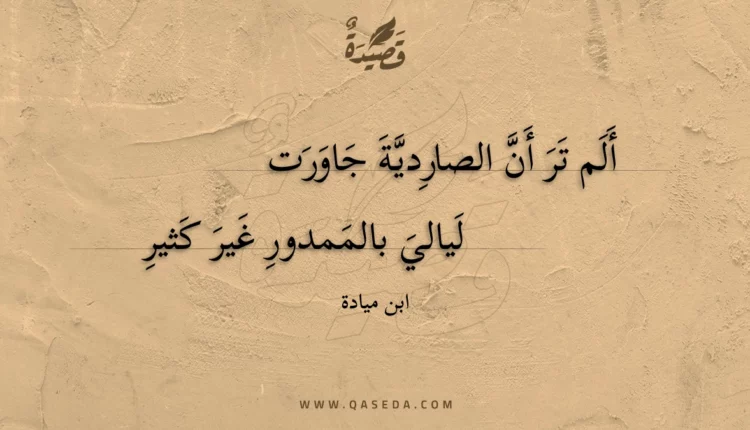 قَصِيدَةٌ
أَلَم تَرَ أَنَّ الصارِديَّةَ جَاوَرَت
لَياليَ بالمَمدورِ غَيرَ كَثيرِ
ابن ميادة
WWW.QASEDA.COM